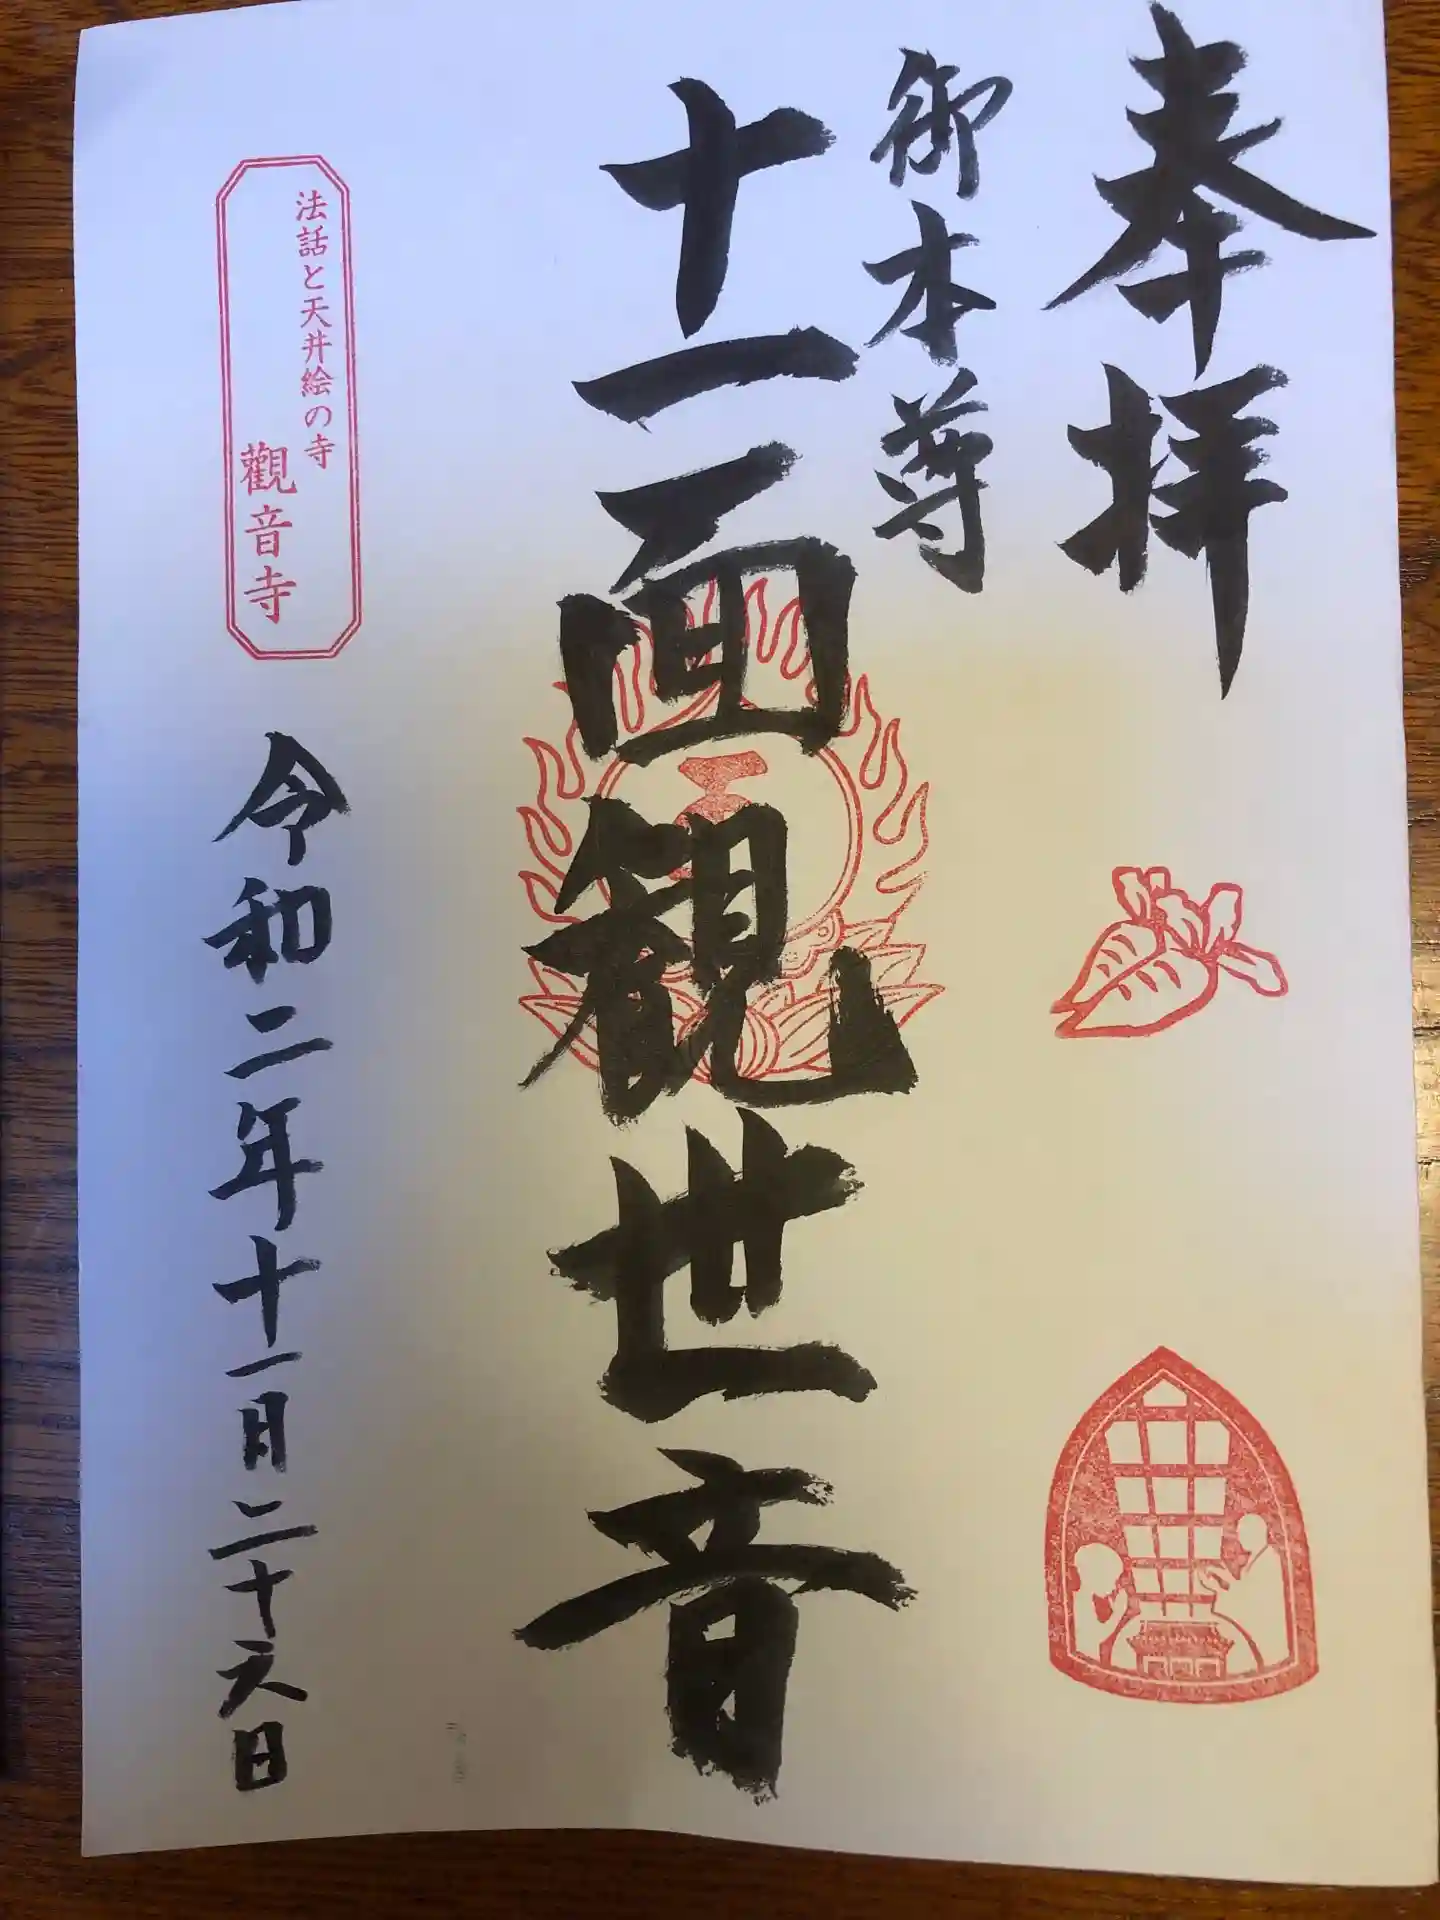 奉拝
御本尊
十一面観世音
法話と天井絵の寺
觀音寺
令和二年十一月二十六日